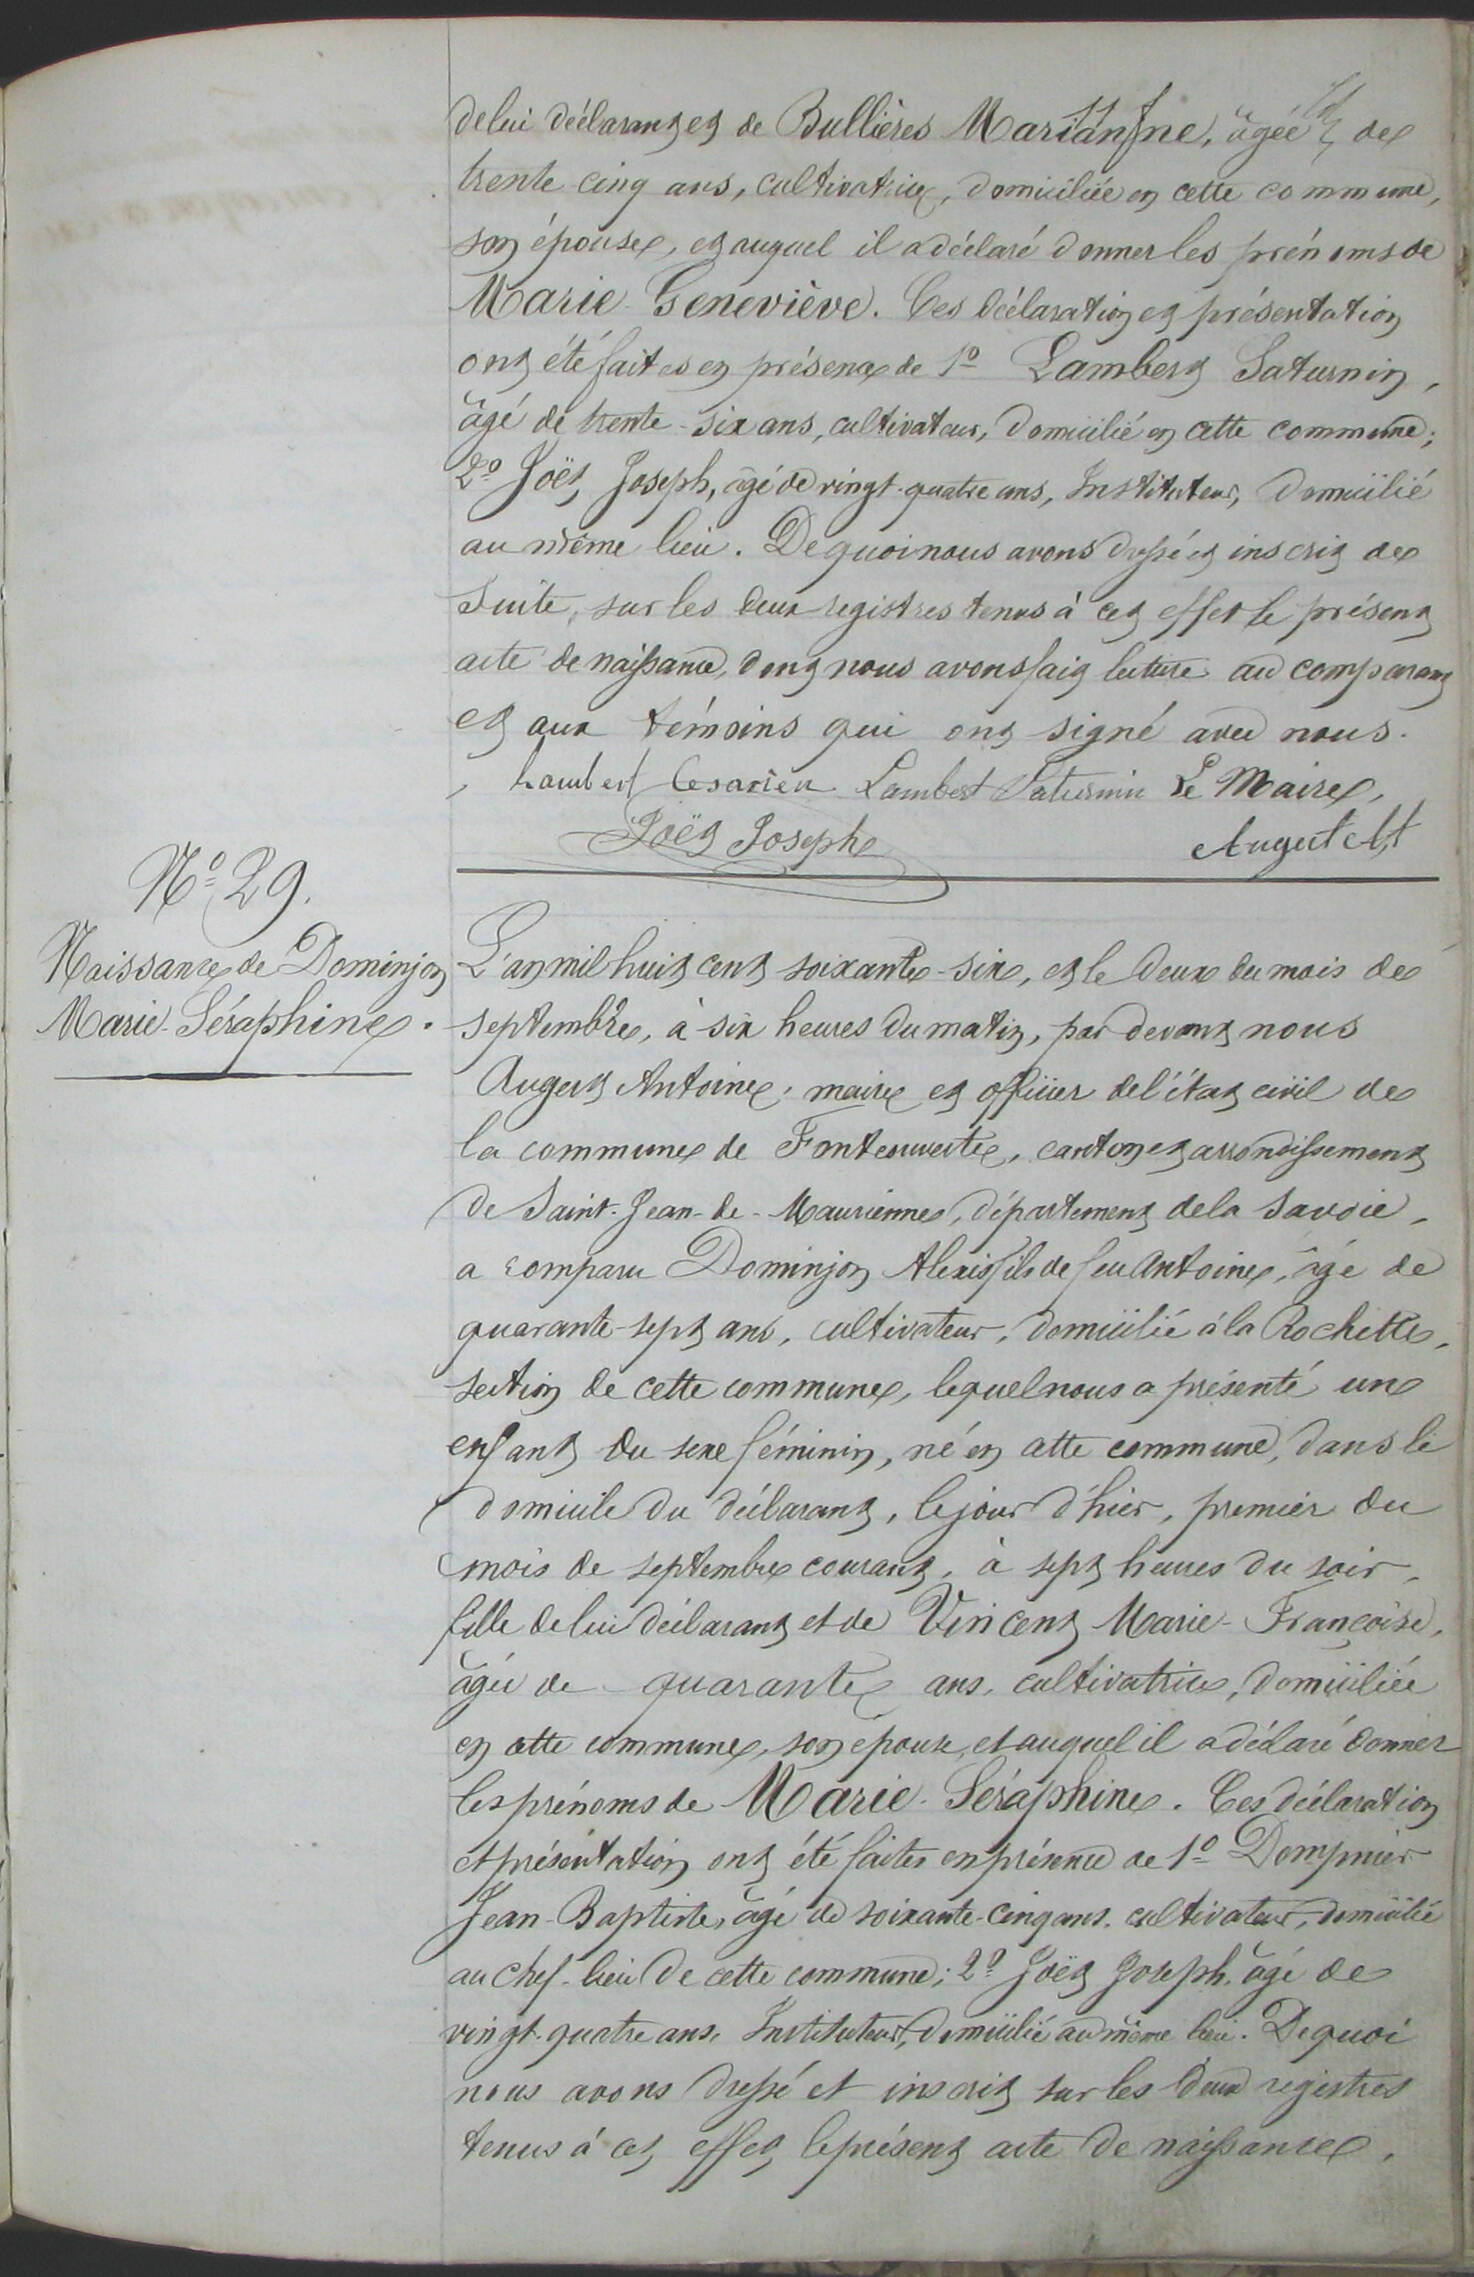 de lui déclarant et de Bullières Marianne, âgée de
trente cinq ans, cultivatrice, domiciliée en cette commune,
son épouse, et auquel il a déclaré donner les prénoms de
Marie Geneviève. Ces déclaration et présentation
ont été faites en présence de 1º Lambert Saturnin,
âgé de trente-six ans, cultivateur, domicilié en cette commune;
2º Joët Joseph, âgé de vingt-quatre ans, Instituteur, domicilié
au même lieu. De quoi nous avons dressé et inscrit de
suite, sur les deux registres tenus à cet effet le présent
acte de naissance, dont nous avons fait lecture au comparant
et aux témoins qui ont signé avec nous.
Lambert Cesarien Lambert Saturnin Le Maire,
Joët Joseph Augert Ant
Nº 29.
Naissance de Dominjon
Marie-Séraphine.
L'an mil huit cent soixante-six, et le deux du mois de
septembre, à six heures du matin, par devant nous
Augert Antoine, maire et officier de l'état civil de
la commune de Fontcouverte, canton et arrondissement
de Saint-Jean-de-Maurienne, département de la Savoie,
a comparu Dominjon Alexis fils de feu Antoine, âgé de
quarante-sept ans, cultivateur, domicilié à la Rochette,
section de cette commune, lequel nous a présenté une
enfant du sexe féminin, né en cette commune, dans le
domicile du déclarant, le jour d'hier, premier du
mois de septembre courant, à sept heures du soir,
fille de lui déclarant et de Vincent Marie-Françoise,
âgée de quarante ans, cultivatrice, domiciliée
en cette commune, son épouse, et auquel il a déclaré donner
les prénoms de Marie-Séraphine. Ces déclaration
et présentation ont été faites en présence de 1º Dompnier
Jean-Baptiste, âgé de soixante-cinq ans, cultivateur, domicilié
au chef-lieu de cette commune; 2º Joët Joseph, âgé de
vingt-quatre ans, Instituteur, domicilié au même lieu. De quoi
nous avons dressé et inscrit sur les deux registres
tenus à cet effet, le présent acte de naissance,